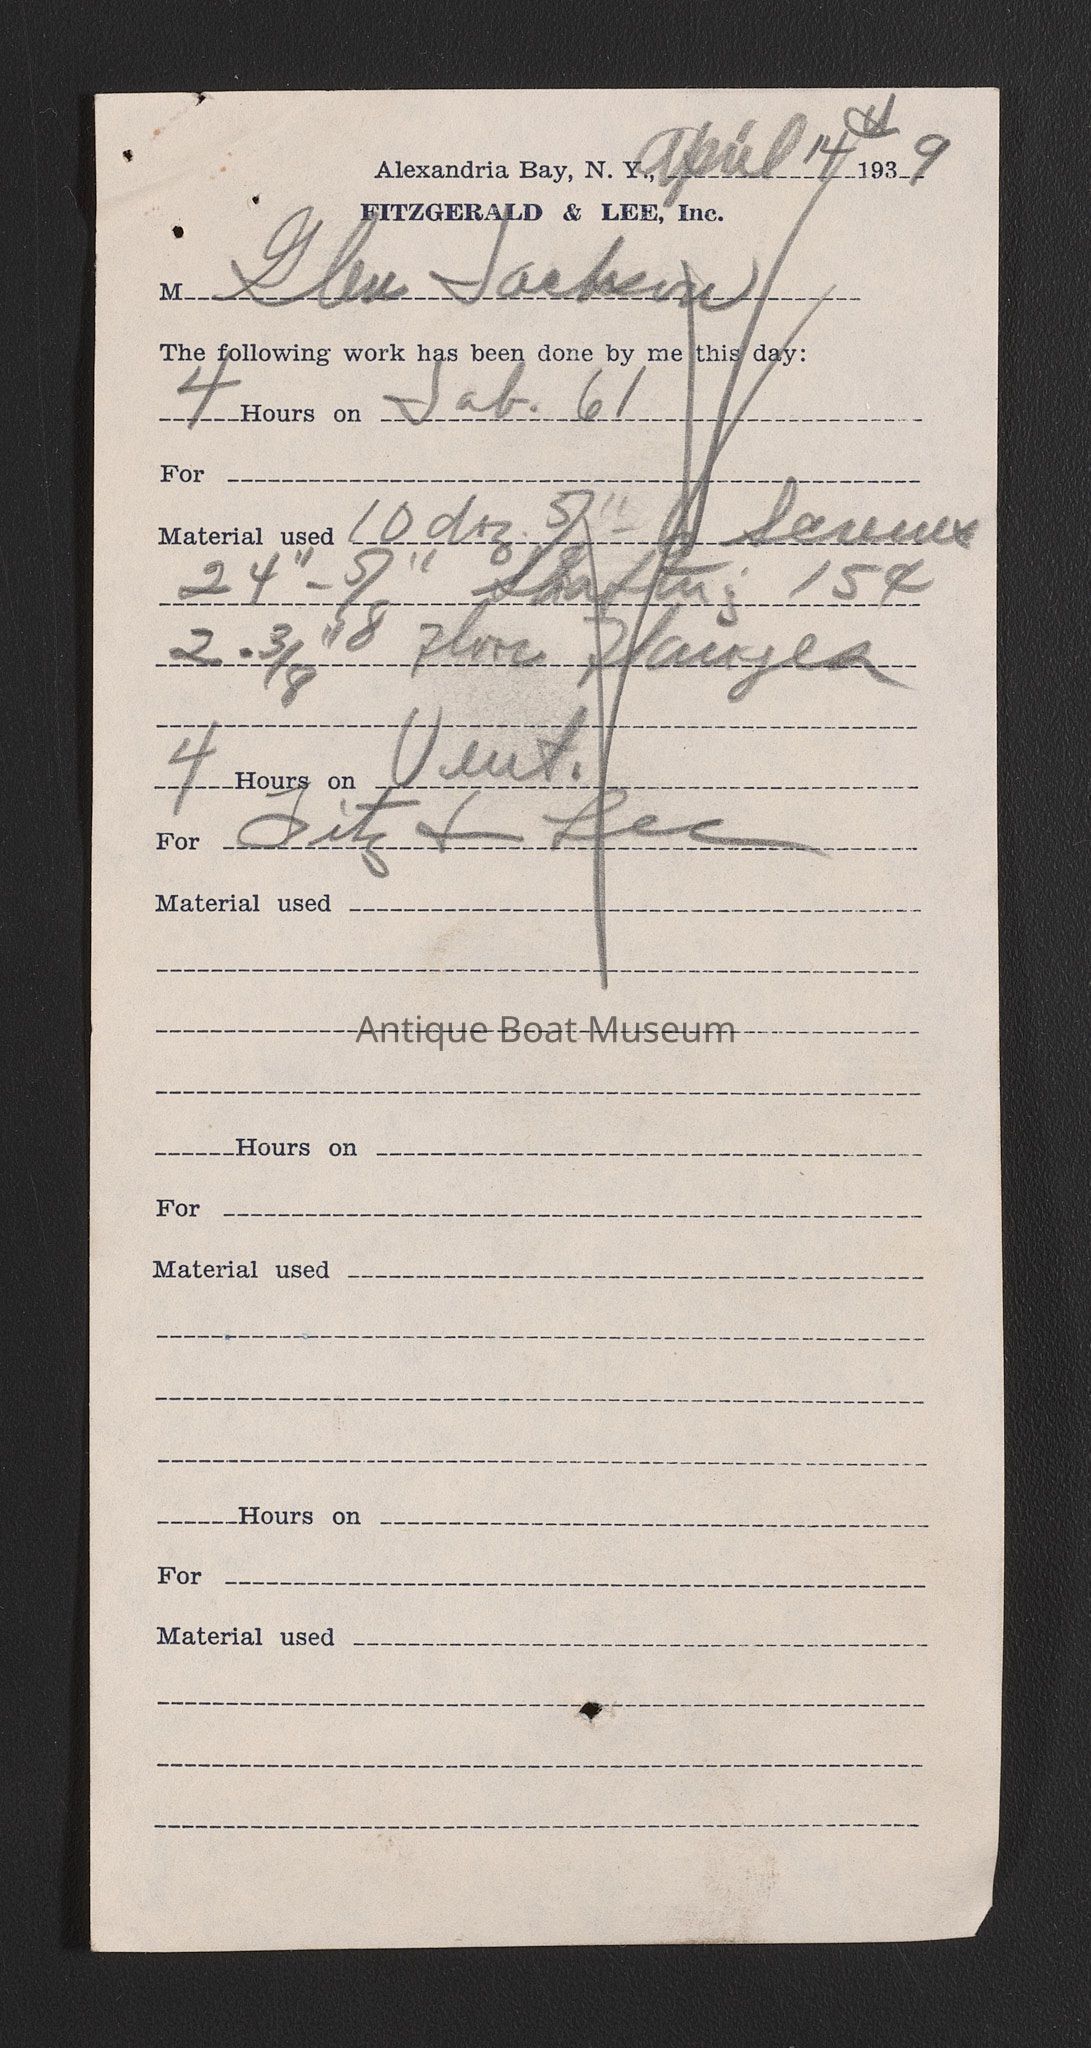 Alexandria Bay, N. Y., April 14th 1939
FITZGERALD & LEE, Inc.
M Glen Jackson
The following work has been done by me this day:
4 Hours on Job. 61
For
Material used 10 doz. 5/8" - 6 Screws
24" - 5/8" Shafting 15¢
2 - 3/8" Floor Flanges
4 Hours on Vent.
For Fitz & Lee
Material used
Antique Boat Museum
Hours on
For
Material used
Hours on
For
Material used